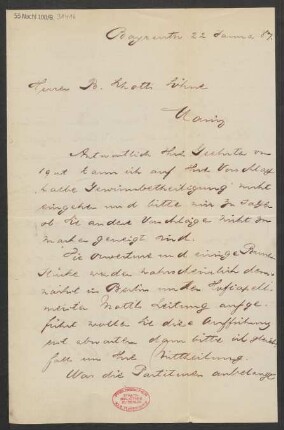 55 Nachl 100/B, 31416
Bayreuth 22 Januar 89.
Herren B. Schott's Söhne
Mainz
Antwortlich Ihres Geehrten vom
19 at kann ich auf Ihre Vorschläge
halbe Gewinnbetheiligung nicht
eingehen und bitte mir zu sagen
ob Sie andere Vorschläge nicht zu
machen geneigt sind.
Die Ouverture und einige
Stücke werden wahrscheinlich dem-
nächst in Berlin unter Hofkapell-
meister Mottl Leitung aufge-
führt wollen Sie diese Aufführung
erst abwarten dann bitte ich gleich-
falls um Ihre Mittheilung.
Was die Partituren anbelangt